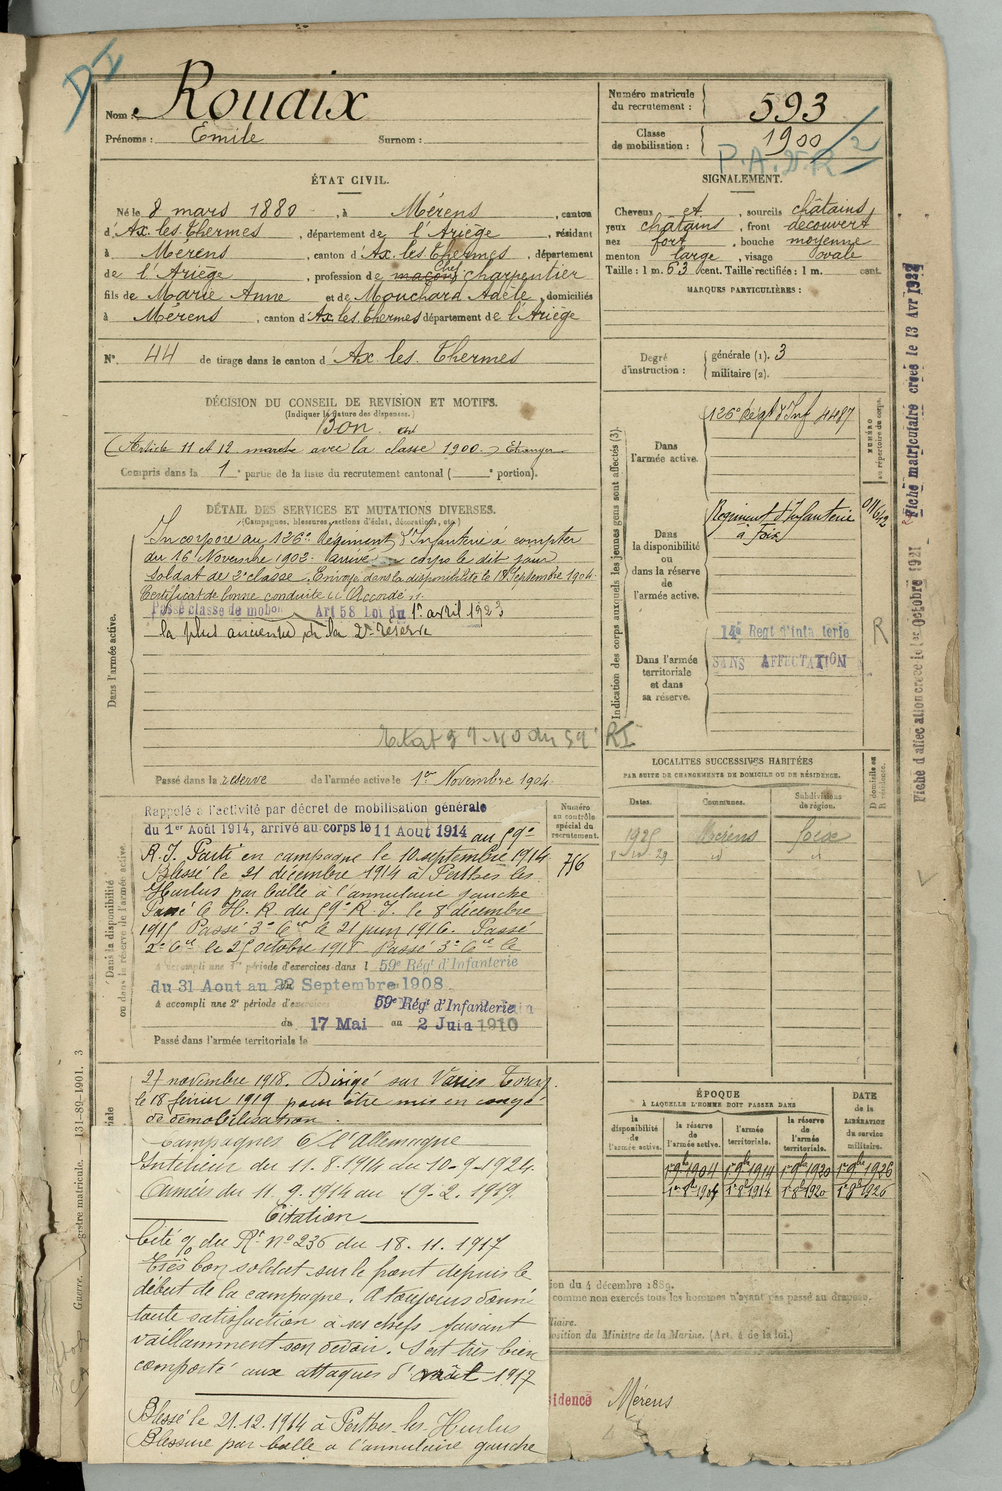 DI
Nom : Rouaix
Prénoms : Emile Surnom :
Numéro matricule du recrutement : 593
Classe de mobilisation : 1900
P.A. 2
ÉTAT CIVIL.
Né le 8 mars 1880, à Mérens, canton
d'Ax les Thermes, département de l'Ariège, résidant
à Mérens, canton d'Ax les Thermes, département
de l'Ariège, profession de maçon Chef charpentier
fils de Marie Anne et de Mouchard Adèle, domiciliés
à Mérens, canton d'Ax les Thermes département de l'Ariège
N° 44 de tirage dans le canton d'Ax les Thermes
SIGNALEMENT.
Cheveux et, sourcils châtains,
yeux châtains, front découvert
nez fort, bouche moyenne
menton large, visage ovale
Taille : 1 m. 63 cent. Taille rectifiée : 1 m. cent.
MARQUES PARTICULIÈRES :
Degré d'instruction : générale (1). 3
militaire (2).
DÉCISION DU CONSEIL DE REVISION ET MOTIFS.
(Indiquer la nature des dispenses.)
Bon
(Article 11 et 12 marche avec la classe 1900.) Etranger
Compris dans la 1e partie de la liste du recrutement cantonal ( e portion).
DÉTAIL DES SERVICES ET MUTATIONS DIVERSES.
(Campagnes, blessures, actions d'éclat, décorations, etc.)
Dans l'armée active.
Incorporé au 126e Régiment d'Infanterie à compter
du 16 Novembre 1902. Arrivé au corps le dit jour
soldat de 2e classe. Envoyé dans la disponibilité le 18 Septembre 1904.
Certificat de bonne conduite "Accordé".
Passé classe de mobon Art 58 Loi du 1er avril 1923
la plus ancienne de la 2e réserve
Etat 57-40 du 59 RI
Passé dans la réserve de l'armée active le 1er Novembre 1904.
Dans la disponibilité ou dans la réserve de l'armée active.
Rappelé à l'activité par décret de mobilisation générale
du 1er Août 1914, arrivé au corps le 11 Aout 1914 au 59e
R.I. Parti en campagne le 10 septembre 1914
Blessé le 21 décembre 1914 à Perthes les
Hurlus par balle à l'annulaire gauche
Passé C.H.R. du 59e R.I. le 8 décembre
1915 Passé 3e Cie le 21 juin 1916. Passé
2e Cie le 25 octobre 1918. Passé 3e Cie le
A accompli une 1re période d'exercices dans l 59e Régt d'Infanterie
du 31 Aout au 22 Septembre 1908
A accompli une 2e période d'exercices 59e Régt d'Infanterie
du 17 Mai au 2 Juin 1910
Passé dans l'armée territoriale le
Numéro au contrôle spécial du recrutement.
756
27 novembre 1918. Dirigé sur
le 18 février 1919 pour être mis en congé
de démobilisation.
Campagnes C/ l'Allemagne
Intérieur du 11.8.1914 au 10-9-1924
Armées du 11.9.1914 au 19.2.1919
Citation
Cité % du Rt n° 236 du 18.11.1917
Très bon soldat sur le front depuis le
début de la campagne. A toujours donné
toute satisfaction à ses chefs faisant
vaillamment son devoir. S'est très bien
comporté aux attaques d'août 1917
Blessé le 21.12.1914 à Perthes-les-Hurlus
Blessure par balle à l'annulaire gauche
Indication des corps auxquels les jeunes gens sont affectés (3).
NUMÉRO au répertoire du corps.
Dans l'armée active.
126e Régt d'Inf 4487
Dans la disponibilité ou dans la réserve de l'armée active.
Régiment d'Infanterie
à Foix
Dans l'armée territoriale et dans sa réserve.
14e Regt d'infanterie
SANS AFFECTATION
R
LOCALITÉS SUCCESSIVES HABITÉES
PAR SUITE DE CHANGEMENTS DE DOMICILE OU DE RÉSIDENCE.
Dates. Communes. Subdivisions de région. D domicile ou R résidence.
1925 Mérens Foix
29 id
ÉPOQUE
À LAQUELLE L'HOMME DOIT PASSER DANS
la disponibilité de l'armée active. la réserve de l'armée active. l'armée territoriale. la réserve de l'armée territoriale.
DATE de la LIBÉRATION du service militaire.
1er 9bre 1904 1er 9bre 1914 1er 9bre 1920 1er 9bre 1926
1er 8bre 1914 1er 8bre 1920 1er 8bre 1926
ion du 4 décembre 1889.
comme non exercés tous les hommes n'ayant pas passé au drapeau.
liaire.
position du Ministre de la Marine. (Art. 4 de la loi.)
sidence Mérens
Fiche matriculaire créée le 13 Avr 1922
Fiche d'affectation créée le 1er Octobre 1921
Guerre. — gistre matricule. — 131-89-1901. 3